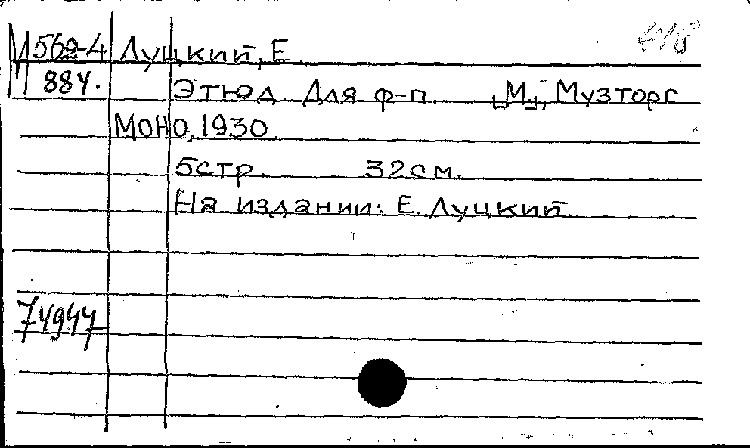 М569-4 Луцкий, Е.
884. Этюд для ф-п. [М], Музторг
МОНО, 1930.
5стр. 32см.
На издании: Е. Луцкий
74947